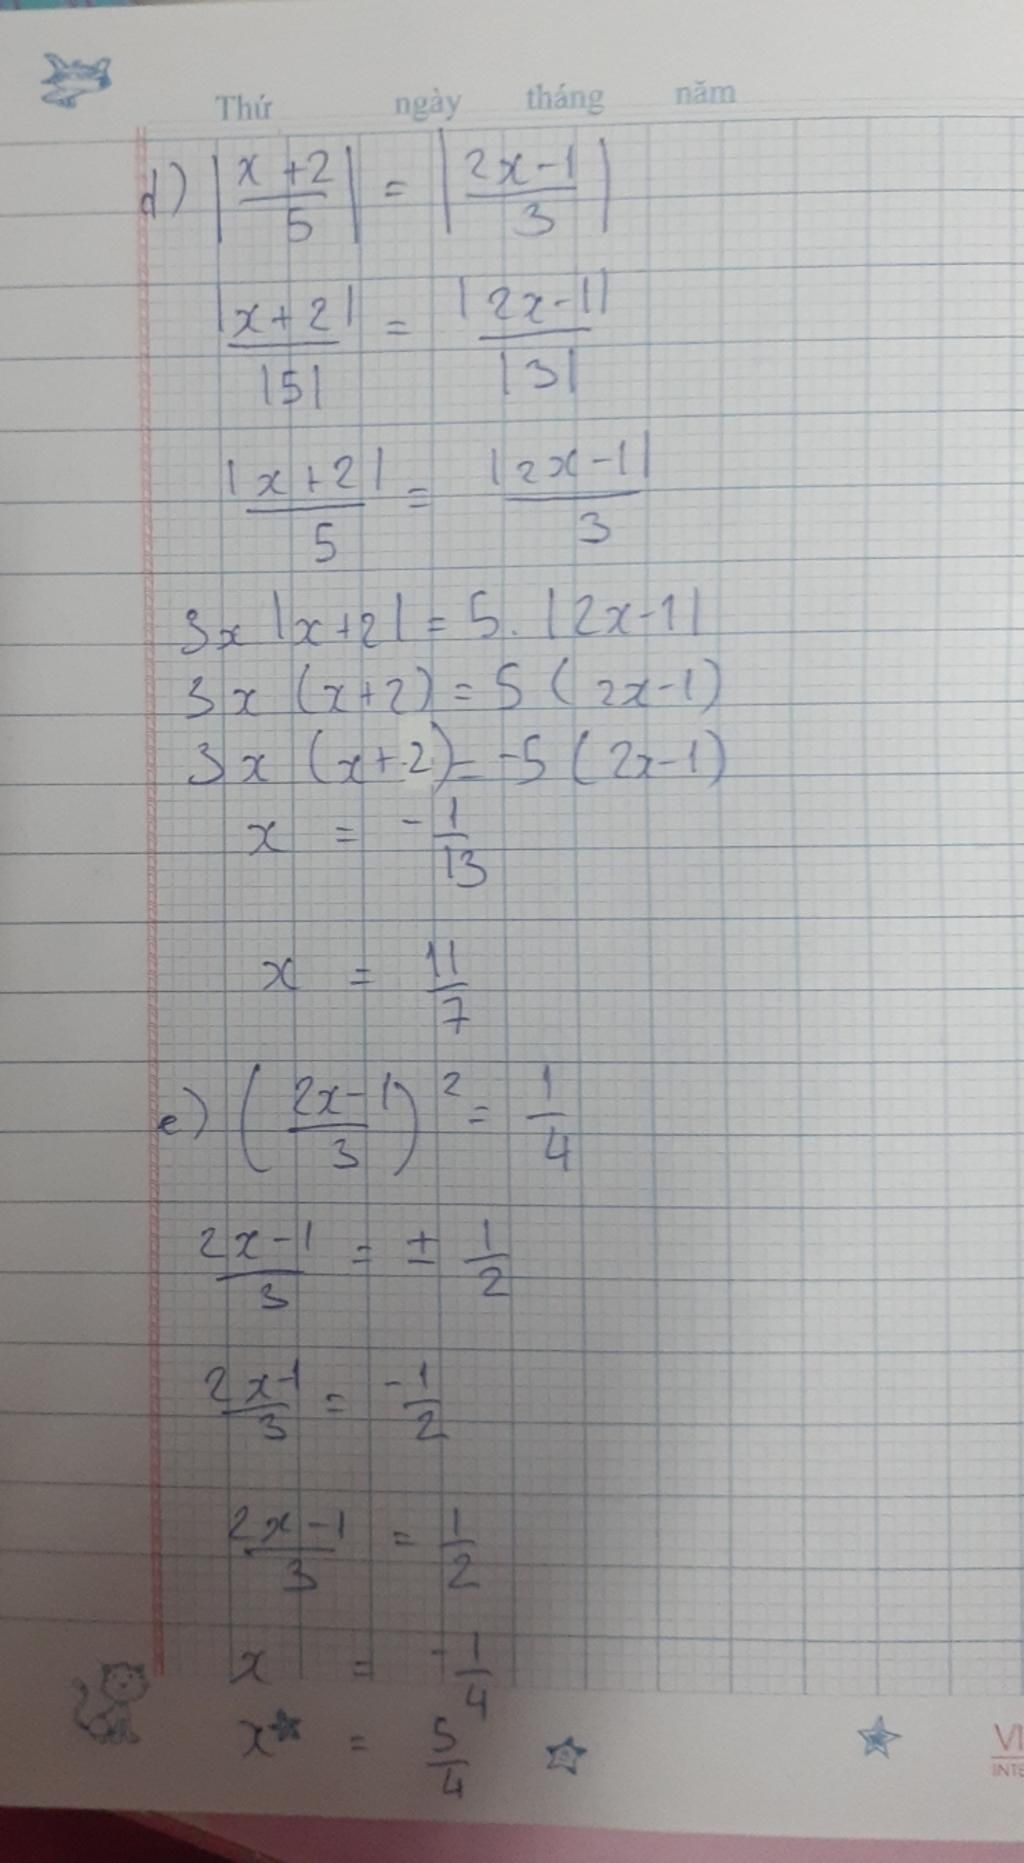 Thứ ngày tháng năm
d) |x+2/5| = |2x-1/3|
|x+2|/|5| = |2x-1|/|3|
|x+2|/5 = |2x-1|/3
3x |x+2| = 5. |2x-1|
3x (x+2) = 5 (2x-1)
3x (x+2) = -5 (2x-1)
x = -1/13
x = 11/7
e) (2x-1/3)² = 1/4
2x-1/3 = ± 1/2
2x-1/3 = -1/2
2x-1/3 = 1/2
x = -1/4
x = 5/4
VI
INTE